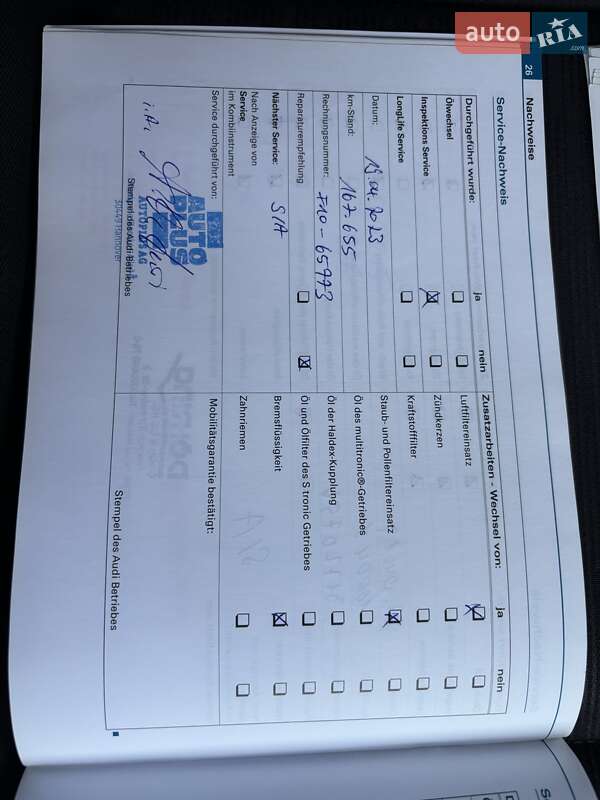 auto RIA .com
26 Nachweise
Service-Nachweis
Durchgeführt wurde: ja nein
Ölwechsel
Inspektions Service
LongLife Service
Datum: 19.04.2023
km-Stand: 167.655
Rechnungsnummer: F10-65973
Reparaturempfehlung
Nächster Service: S/A
Nach Anzeige von
Service
im Kombiinstrument
Service durchgeführt von:
i.A.
AUTO
PLUS
AUTOPLUS AG
30449 Hannover
Stempel des Audi Betriebes
Zusatzarbeiten - Wechsel von: ja nein
Luftfiltereinsatz
Zündkerzen
Kraftstofffilter
Staub- und Pollenfiltereinsatz
Öl des multitronic®-Getriebes
Öl der Haldex-Kupplung
Öl und Ölfilter des S tronic Getriebes
Bremsflüssigkeit
Zahnriemen
Mobilitätsgarantie bestätigt:
Stempel des Audi Betriebes